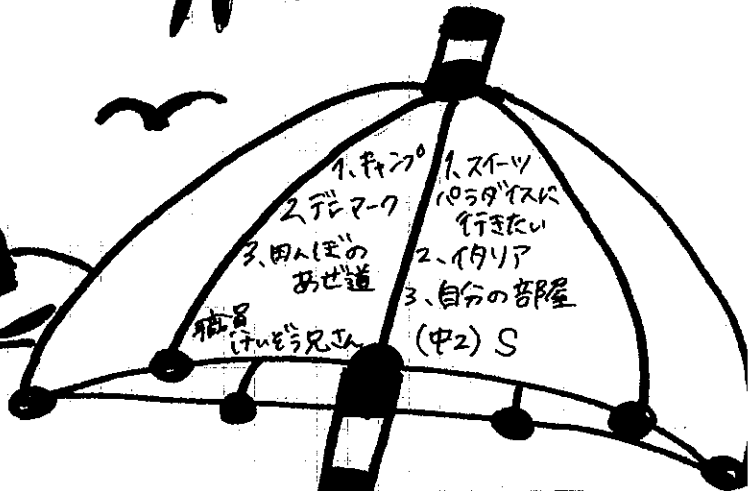 1、キャンプ
2、デンマーク
3、田んぼの
あぜ道
職員
けいぞう兄さん
1、スイーツ
パラダイスに
行きたい
2、イタリア
3、自分の部屋
(中2) S